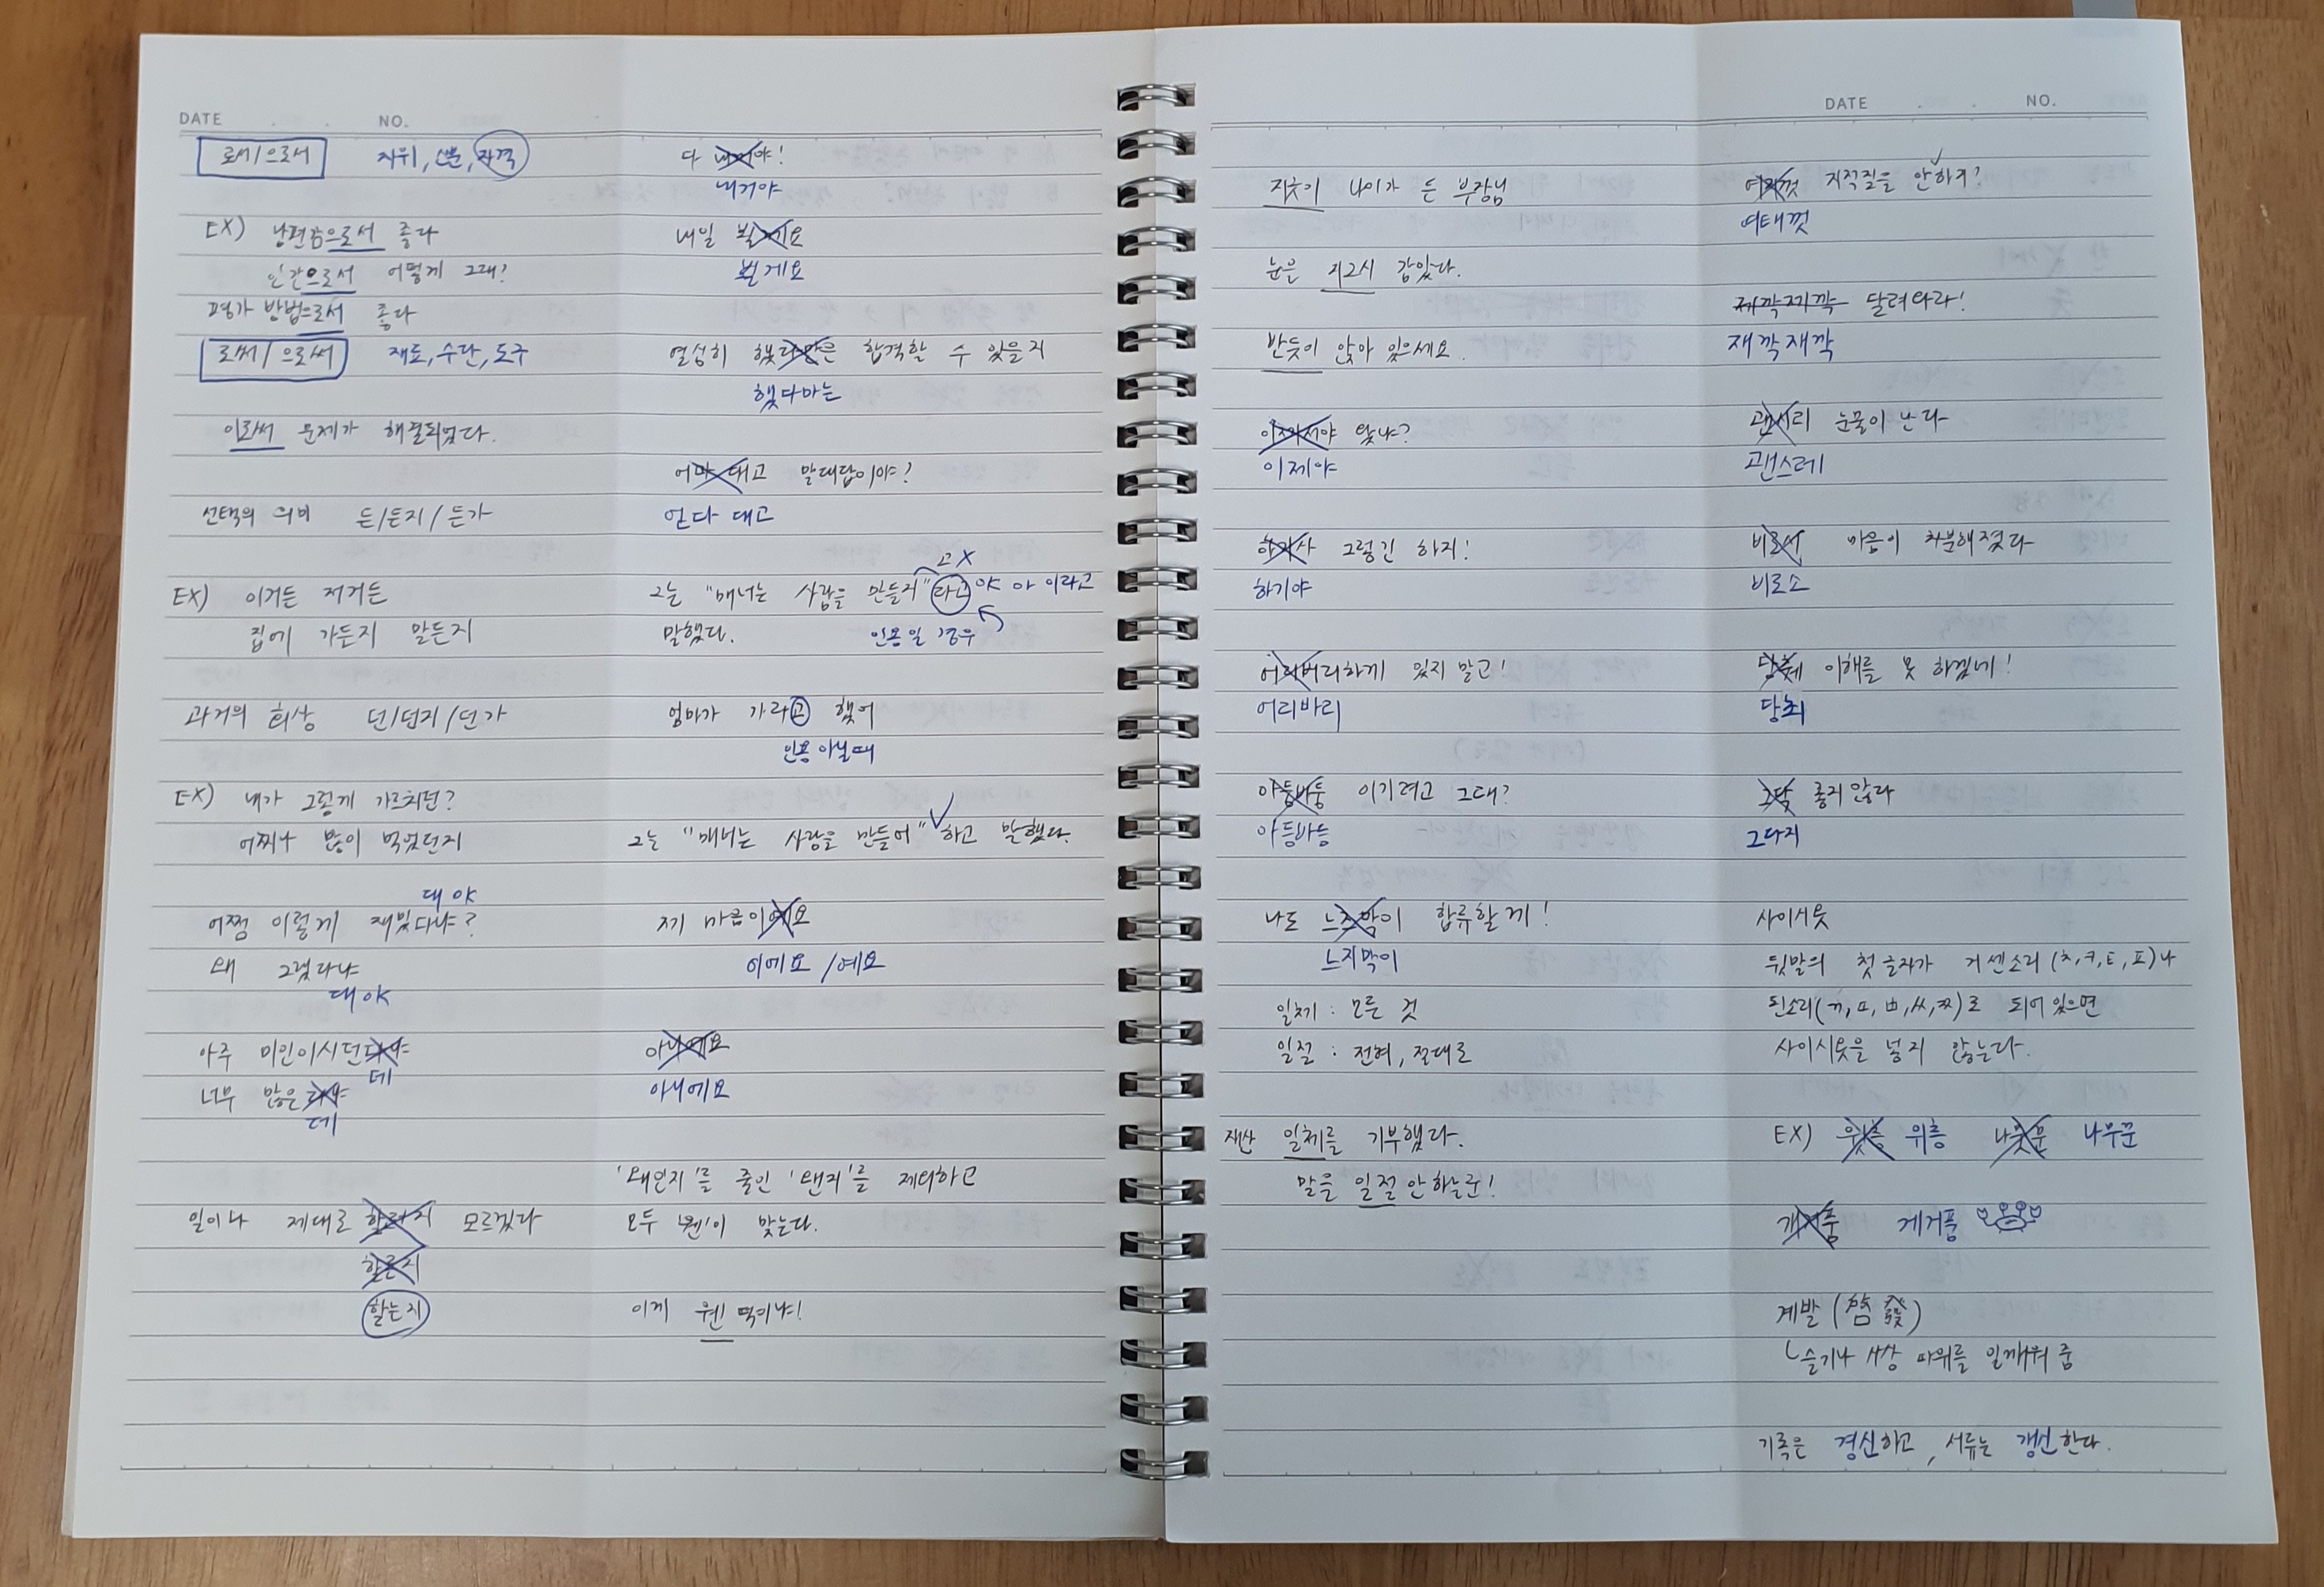 DATE . . NO.
로서/으로서 지위, 신분, 자격
EX) 남편감으로서 좋다
인간으로서 어떻게 그래?
평가 방법으로서 좋다
로써/으로써 재료, 수단, 도구
이로써 문제가 해결되었다.
선택의 의미 든/든지/든가
EX) 이거든 저거든
집에 가든지 말든지
과거의 회상 던/던지/던가
EX) 내가 그렇게 가르치던?
어찌나 많이 먹었던지
대야
어쩜 이렇게 재밌다냐?
왜 그렇다냐
대야
아주 미인이시던
데
너무 많은
데
일이나 제대로 할런지 모르겠다
할른지
할는지
다 야!
내거야
내일 요
뵐게요
열심히 했다만은 합격할 수 있을지
했다마는
어따 대고 말대답이야?
얻다 대고
고X
그는 "매너는 사람을 만들지" 라고 야 아 이라고
말했다. 인용일 경우
엄마가 가라고 했어
인용 아닐때
그는 "매너는 사람을 만들어" 하고 말했다.
제 마음이에요
이에요/예요
아니예요
아니에요
'왜인지'를 줄인 '왠지'를 제외하고
모두 '웬'이 맞는다.
이게 웬 떡이냐!
DATE . . NO.
지긋이 나이가 든 부장님
눈을 지그시 감았다.
반듯이 앉아 있으세요.
이제서야 왔냐?
이제야
하기사 그렇긴 하지!
하기야
어리버리하게 있지 말고!
어리바리
아둥바둥 이기려고 그래?
아등바등
나도 느즈막이 합류할게!
느지막이
일체 : 모든 것
일절 : 전혀, 절대로
재산 일체를 기부했다.
말을 일절 안하는군!
여지껏 지적질을 안하지?
여태껏
제깍제깍 달려와라!
재깍재깍
괜시리 눈물이 난다
괜스레
비로서 마음이 차분해졌다
비로소
당췌 이해를 못 하겠네!
당최
그닥 좋지 않다
그다지
사이시옷
뒷말의 첫 글자가 거센소리(ㅊ,ㅋ,ㅌ,ㅍ)나
된소리(ㄲ,ㄸ,ㅃ,ㅆ,ㅉ)로 되어 있으면
사이시옷을 넣지 않는다.
EX) 윗층 위층 나뭇꾼 나무꾼
개거품 게거품
계발(啓發)
슬기나 사상 따위를 일깨워 줌
기록은 경신하고, 서류는 갱신한다.